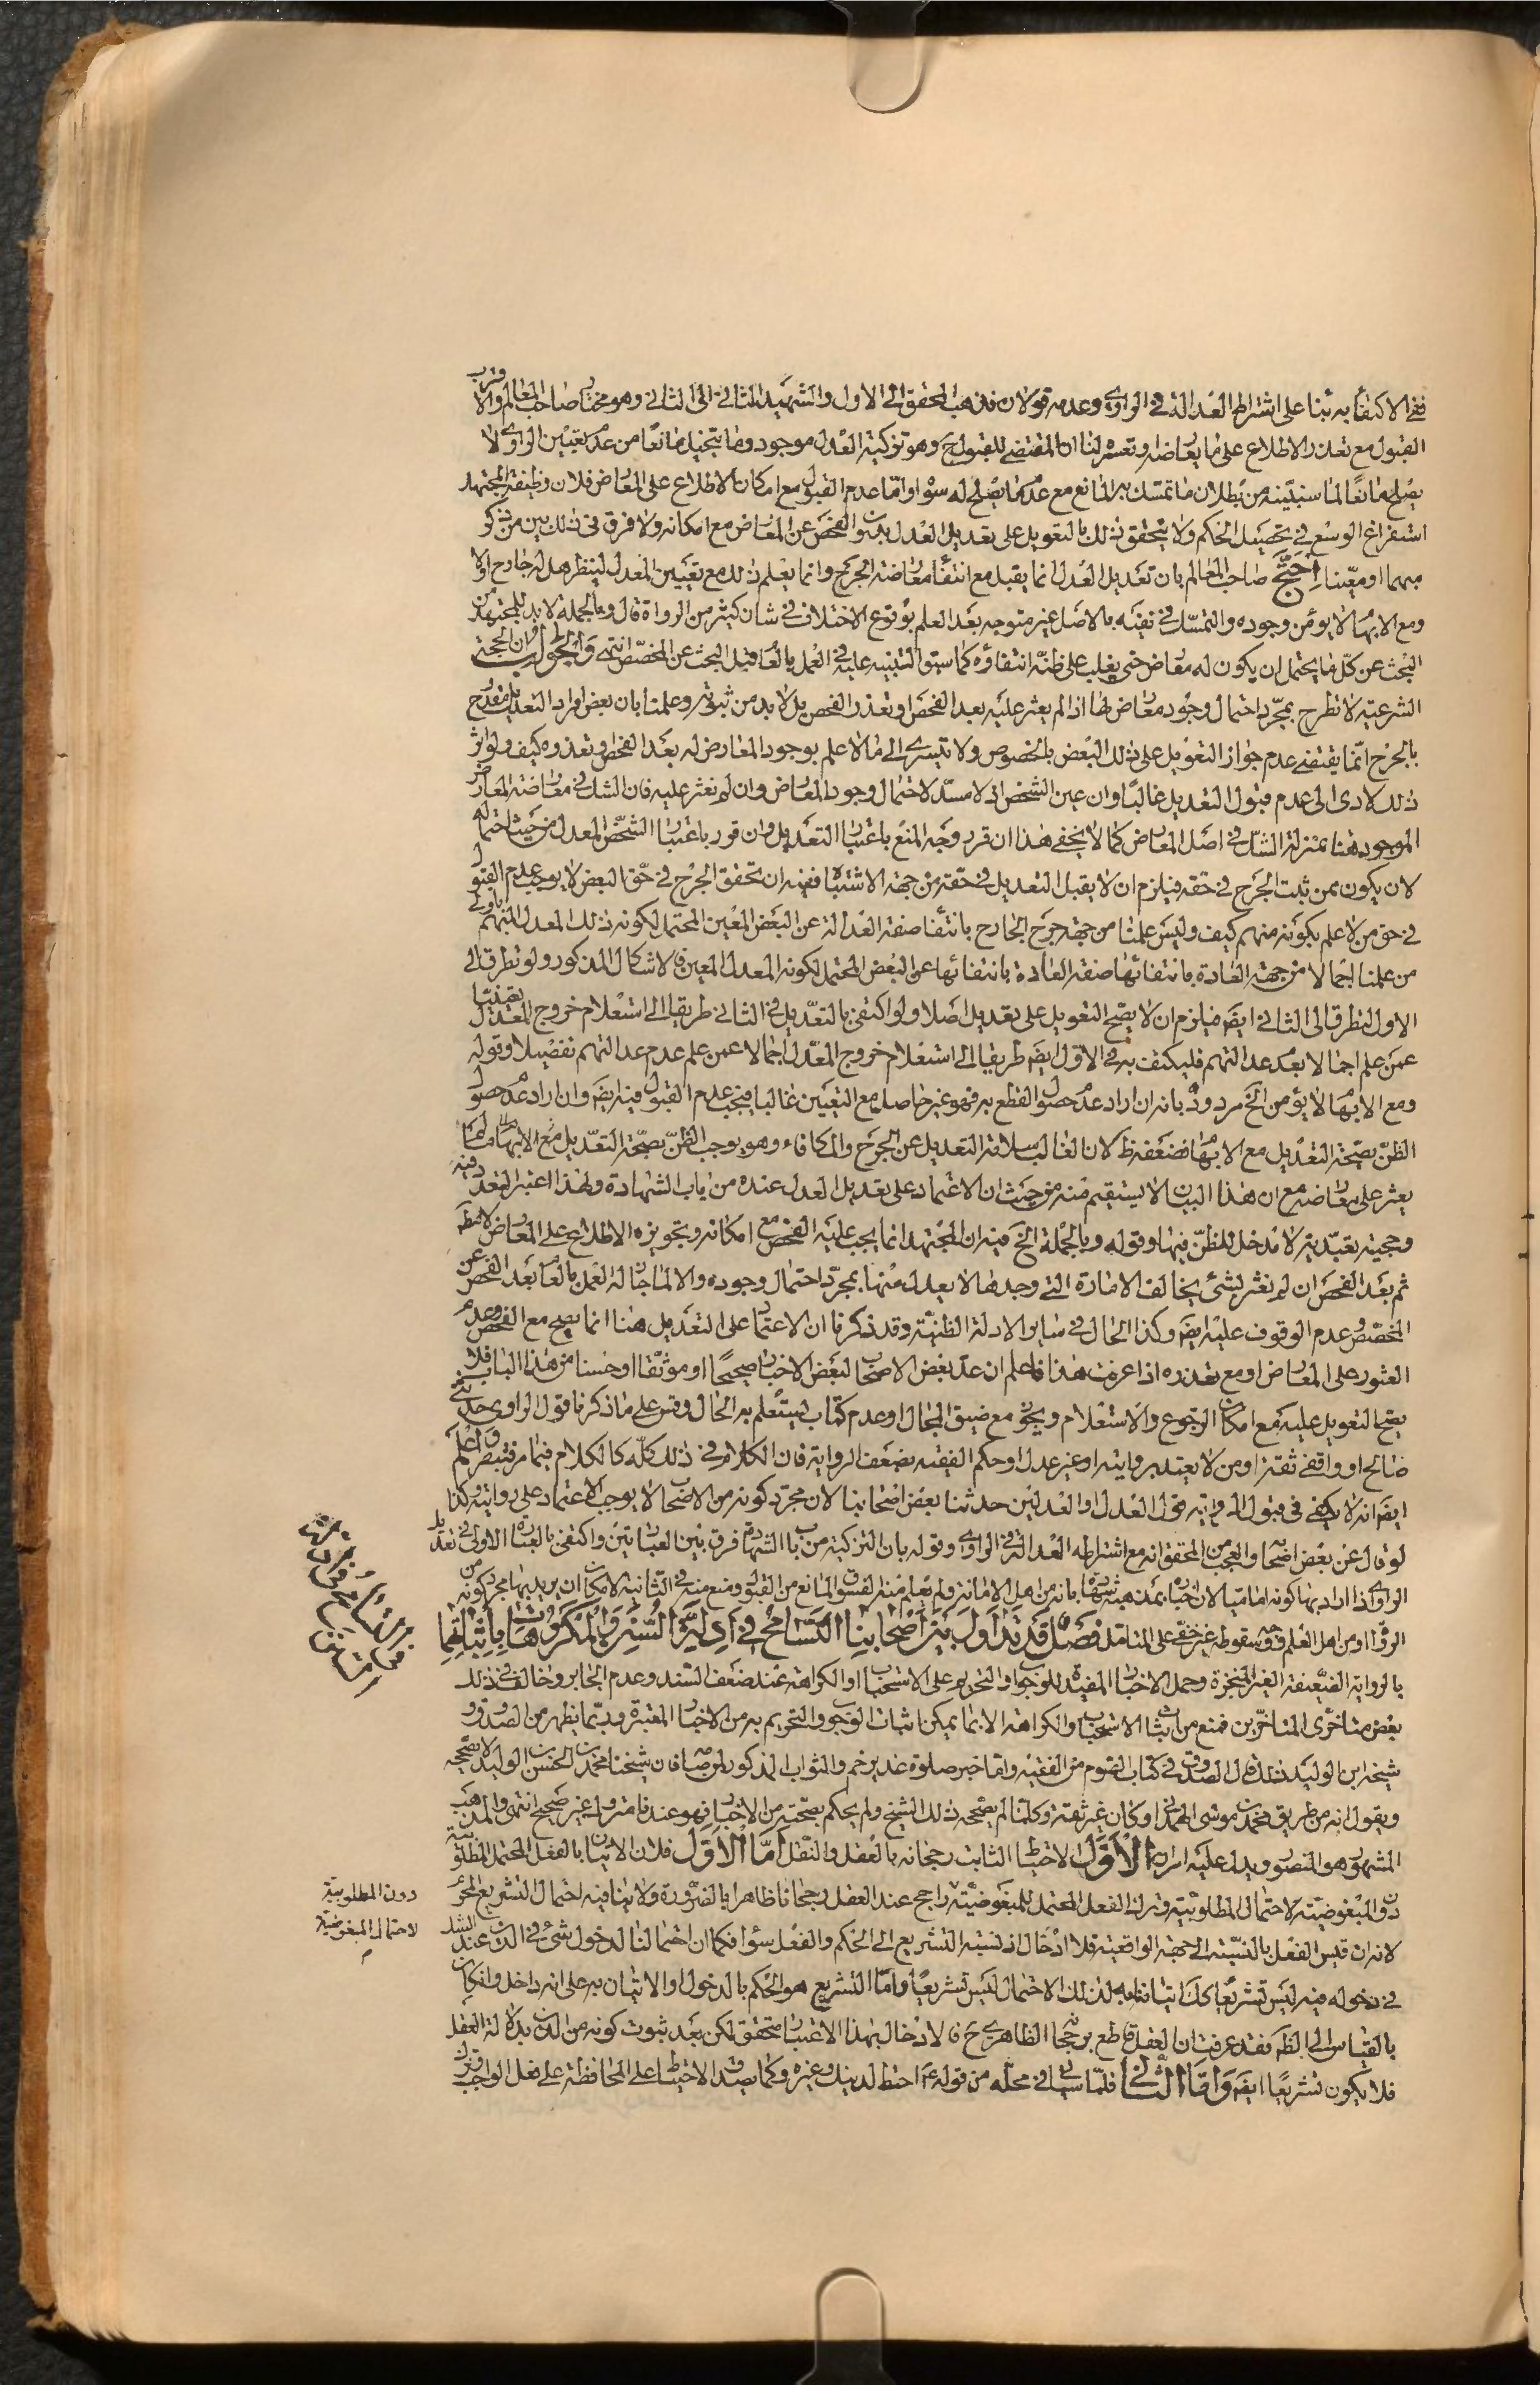 ففي الاكتفاء به بناء على اشتراط العدالة في الراوي وعدمه قولان فذهب المحقق الى الاول والشهيد الثاني الى الثاني وهو مختار صاحب المعالم والاقرب
القبول مع تعذر الاطلاع على ما يعارضه وتعسره لنا ان المقتضي للقبول ح وهو تزكية العدل موجود وما يتخيل مانعا من عدم تعيين الراوي لا
يصلح مانعا لما سنبينه من بطلان ما تمسك به المانع مع عدم ما يصلح له سواه واما عدم القبول مع امكان الاطلاع على المعارض فلان وظيفة المجتهد
استفراغ الوسع في تحصيل الحكم ولا يتحقق ذلك بالتعويل على تعديل العدل بدون الفحص عن المعارض مع امكانه ولا فرق في ذلك بين من ذكر
مبهما او معينا احتج صاحب المعالم بان تعديل العدل انما يقبل مع انتفاء معارضة الجرح وانما يعلم ذلك مع تعيين المعدل لينظر هل له جارح او لا
ومع الابهام لا يؤمن وجوده والتمسك في نفيه بالاصل غير متوجه بعد العلم بوقوع الاختلاف في شان كثير من الرواة قال وبالجملة لا بد للمجتهد من
البحث عن كل ما يحتمل ان يكون له معارض حتى يغلب على ظنه انتفاؤه كما سبق التنبيه عليه في العمل بالعام قبل البحث عن المخصص انتهى والجواب ان الحجة
الشرعية لا تطرح بمجرد احتمال وجود معارض لها اذا لم يعثر عليه بعد الفحص او تعذر الفحص بل لا بد من ثبوته وعلمنا بان بعض افراد التعديل مقدوح
بالجرح انما يقتضي عدم جواز التعويل على ذلك البعض بالخصوص ولا يتسرى الى ما لا علم بوجود المعارض له بعد الفحص او تعذره كيف ولو اثر
ذلك لادى الى عدم قبول التعديل غالبا وان عين الشخص اذ لا مسد لاحتمال وجود المعارض وان لم نعثر عليه فان الشك في معارضة المعارض
الموجود هنا بمنزلة الشك في اصل المعارض كما لا يخفى هذا ان قرر وجه المنع باعتبار التعديل وان قرر باعتبار الشخص المعدل من حيث احتماله
لان يكون ممن ثبت الجرح في حقه فيلزم ان لا يقبل التعديل في حقه من جهة الاشتباه ففيه ان تحقق الجرح في حق البعض لا يوجب عدم القبول
في حق من لا علم بكونه منهم كيف وليس علمنا من جهة جرح الجارح بانتفاء صفة العدالة عن البعض المعين المحتمل لكونه ذلك المعدل المبهم باولى
من علمنا اجمالا من جهة العادة بانتفائها صفة العادة بانتفائها عن البعض المحتمل لكونه المعدل المعين فالاشكال المذكور ولو تطرق الى
الاول لتطرق الى الثاني ايضا فيلزم ان لا يصح التعويل على تعديل اصلا ولو اكتفي بالتعديل في الثاني طريقا الى استعلام خروج المعدل بعينه
عمن علم اجمالا بعدم عدالتهم فليكتف به في الاول ايضا طريقا الى استعلام خروج المعدل اجمالا عمن علم عدم عدالتهم تفصيلا وقوله
ومع الابهام لا يؤمن الخ مردود بانه ان اراد عدم حصول القطع به فهو غير حاصل مع التعيين غالبا فيجب عدم القبول فيه ايضا وان اراد عدم حصول
الظن بصحة التعديل مع الابهام فضعفه ظ لان الغالب سلامة التعديل عن الجرح والمكافاء وهو يوجب الظن بصحة التعديل مع الابهام ما لم
يعثر على معارضه مع ان هذا البيان لا يستقيم منه من حيث ان الاعتماد على تعديل العدل عنده من باب الشهادة ولهذا اعتبر التعدد فيه
وحجيته تعبدية لا مدخل للظن فيها وقوله وبالجملة الخ فيه ان المجتهد انما يجب عليه الفحص مع امكانه وتجويزه الاطلاع على المعارض لا مط
ثم بعد الفحص ان لم نعثر لشيء يخالف الامارة التي وجدها لا يعدل منها بمجرد احتمال وجوده والا لما جاز له العمل بالعام بعد الفحص عن
المخصص وعدم الوقوف عليه ايضا وكذا الحال في ساير الادلة الظنية وقد ذكرنا ان الاعتماد على التعديل هنا انما يصح مع الفحص وعدم
العثور على المعارض او مع تعذره اذا عرفت هذا فاعلم ان عد بعض الاصحاب لبعض الاخبار صحيحا او موثقا او حسنا من هذا الباب فلا
يصح التعويل عليه مع امكان الرجوع والاستعلام ويجوز مع ضيق المجال او عدم كتاب ليستعلم به الحال وقس على ما ذكرنا قول الراوي حدثني
صالح او واقفي ثقة او من لا يعتد بروايته او غير عدل او حكم الفقيه بضعف الرواية فان الكلام في ذلك كله كالكلام فيما مر فتبصر واعلم
ايضا انه لا يكفي في قبول الرواية قول العدل او العدلين حدثنا بعض اصحابنا لان مجرد كونه من الاصحاب لا يوجب الاعتماد على روايته وكذا
لو قال عن بعض اصحابه والعجب من المحقق انه مع اشتراطه العدالة في الراوي وقوله بان التزكية من باب الشهادة فرق بين العبارتين واكتفى بالعبارة الاولى في تعديل
الراوي اذا اراد بها كونه اماميا لان اخباره بمذهبه شهادة بانه من اهل الامانة ولم يعلم منه الفسق المانع من القبول ومنع منه في الثانية لامكان ان يريد بها مجرد كونه من
الرواة او من اهل العلم ووجه سقوطه غير خفي على المتامل فصل قد تداول بين اصحابنا التسامح في ادلة السنن والمكروهات باثباتها
بالرواية الضعيفة الغير المنجبرة وحمل الاخبار المفيدة للوجوب او التحريم على الاستحباب او الكراهة عند ضعف السند وعدم الجابر وخالف في ذلك
بعض متاخري المتاخرين فمنع من اثبات الاستحباب والكراهة الا بما يمكن اثبات الوجوب والتحريم به من الاخبار المعتبرة وربما يظهر من الصدوق و
شيخه ابن الوليد ذلك قال الصدوق في كتاب الصوم من الفقيه واما خبر صلوة غدير خم والثواب المذكور لمن صامه فان شيخنا محمد بن الحسن بن الوليد لا يصححه
ويقول انه من طريق محمد بن موسى الهمداني وكان غير ثقة وكلما لم يصححه ذلك الشيخ ولم يحكم بصحته من الاخبار فهو عندنا متروك غير صحيح انتهى والمذهب
المشهور هو المنصور ويدل عليه امران الاول الاحتياط الثابت رجحانه بالعقل والنقل اما الاول فلان الاتيان بالفعل المحتمل للمطلوبية
دون المبغوضية لاحتمال المطلوبية وترك الفعل المحتمل للمبغوضية راجح عند العقل رجحانا ظاهرا بالضرورة ولا ينافيه احتمال التشريع المحرم
لانه ان قيس الفعل بالنسبة الى جهة الواقعية فلا ادخال اذ نسبة التشريع الى الحكم والفعل سواء فكما ان احتمالنا لدخول شيء في الدين عند الشك
في دخوله فيه ليس تشريعا كك اتياننا به لذلك الاحتمال ليس تشريعا واما التشريع هو الحكم بالدخول او الاتيان به على انه داخل وان كان
بالقياس الى الظ فقد عرفت ان العقل قاطع برجحانه الظاهري ح فالادخال بهذا الاعتبار متحقق لكن بعد ثبوت كونه من الدين بدلالة العقل
فلا يكون تشريعا ايضا واما الثاني فلما سياتي في محله من قوله ع احتط لدينك وغيره وكما يصدق الاحتياط على المحافظة على فعل الواجب وترك
دون المطلوبية
لاحتمال المبغوضية
م